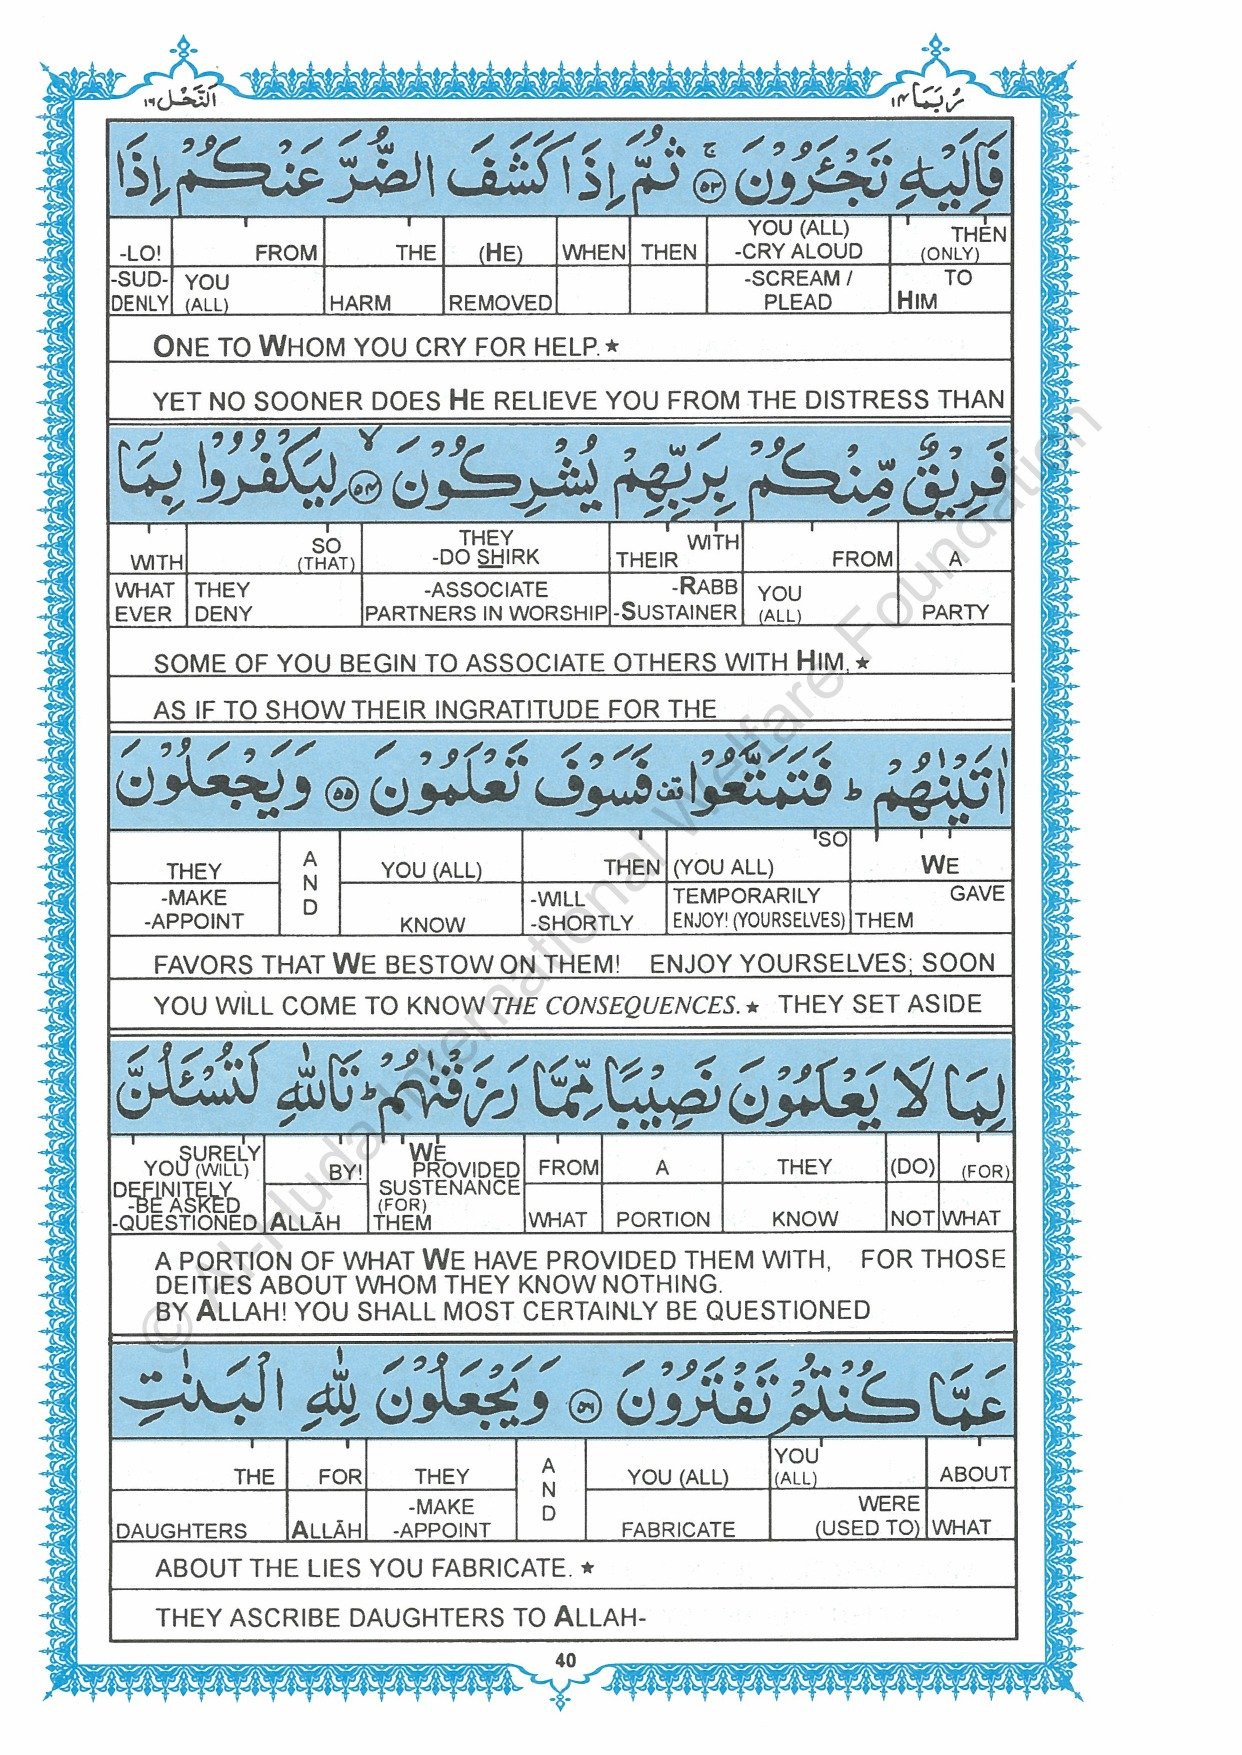 النَّحْل ١٦
رُبَمَا ١٤
فَاِلَيْهِ تَجْـَٔرُوْنَ ۚ ٥٣ ثُمَّ اِذَا كَشَفَ الضُّرَّ عَنْكُمْ اِذَا
-LO! FROM THE (HE) WHEN THEN YOU (ALL) -CRY ALOUD THEN (ONLY)
-SUD-DENLY YOU (ALL) HARM REMOVED -SCREAM / PLEAD TO HIM
ONE TO WHOM YOU CRY FOR HELP.★
YET NO SOONER DOES HE RELIEVE YOU FROM THE DISTRESS THAN
فَرِيْقٌ مِّنْكُمْ بِرَبِّهِمْ يُشْرِكُوْنَ ۙ ٥٤ لِيَكْفُرُوْا بِمَآ
WITH SO (THAT) THEY -DO SHIRK THEIR WITH FROM A
WHAT EVER THEY DENY -ASSOCIATE PARTNERS IN WORSHIP -RABB -SUSTAINER YOU (ALL) PARTY
SOME OF YOU BEGIN TO ASSOCIATE OTHERS WITH HIM,★
AS IF TO SHOW THEIR INGRATITUDE FOR THE
اٰتَيْنٰهُمْ ؕ فَتَمَتَّعُوْا قف فَسَوْفَ تَعْلَمُوْنَ ٥٥ وَيَجْعَلُوْنَ
THEY AND YOU (ALL) THEN (YOU ALL) SO WE
-MAKE -APPOINT KNOW -WILL -SHORTLY TEMPORARILY ENJOY! (YOURSELVES) GAVE THEM
FAVORS THAT WE BESTOW ON THEM! ENJOY YOURSELVES; SOON
YOU WILL COME TO KNOW THE CONSEQUENCES.★ THEY SET ASIDE
لِمَا لَا يَعْلَمُوْنَ نَصِيْبًا مِّمَّا رَزَقْنٰهُمْ ؕ تَاللّٰهِ لَتُسْـَٔلُنَّ
SURELY YOU (WILL) BY! WE PROVIDED FROM A THEY (DO) (FOR)
DEFINITELY -BE ASKED -QUESTIONED ALLĀH SUSTENANCE (FOR) THEM WHAT PORTION KNOW NOT WHAT
A PORTION OF WHAT WE HAVE PROVIDED THEM WITH, FOR THOSE
DEITIES ABOUT WHOM THEY KNOW NOTHING.
BY ALLAH! YOU SHALL MOST CERTAINLY BE QUESTIONED
عَمَّا كُنْتُمْ تَفْتَرُوْنَ ٥٦ وَيَجْعَلُوْنَ لِلّٰهِ الْبَنٰتِ
THE FOR THEY AND YOU (ALL) YOU (ALL) ABOUT
DAUGHTERS ALLĀH -MAKE -APPOINT FABRICATE WERE (USED TO) WHAT
ABOUT THE LIES YOU FABRICATE. ★
THEY ASCRIBE DAUGHTERS TO ALLAH-
40
© Al-Huda International Welfare Foundation